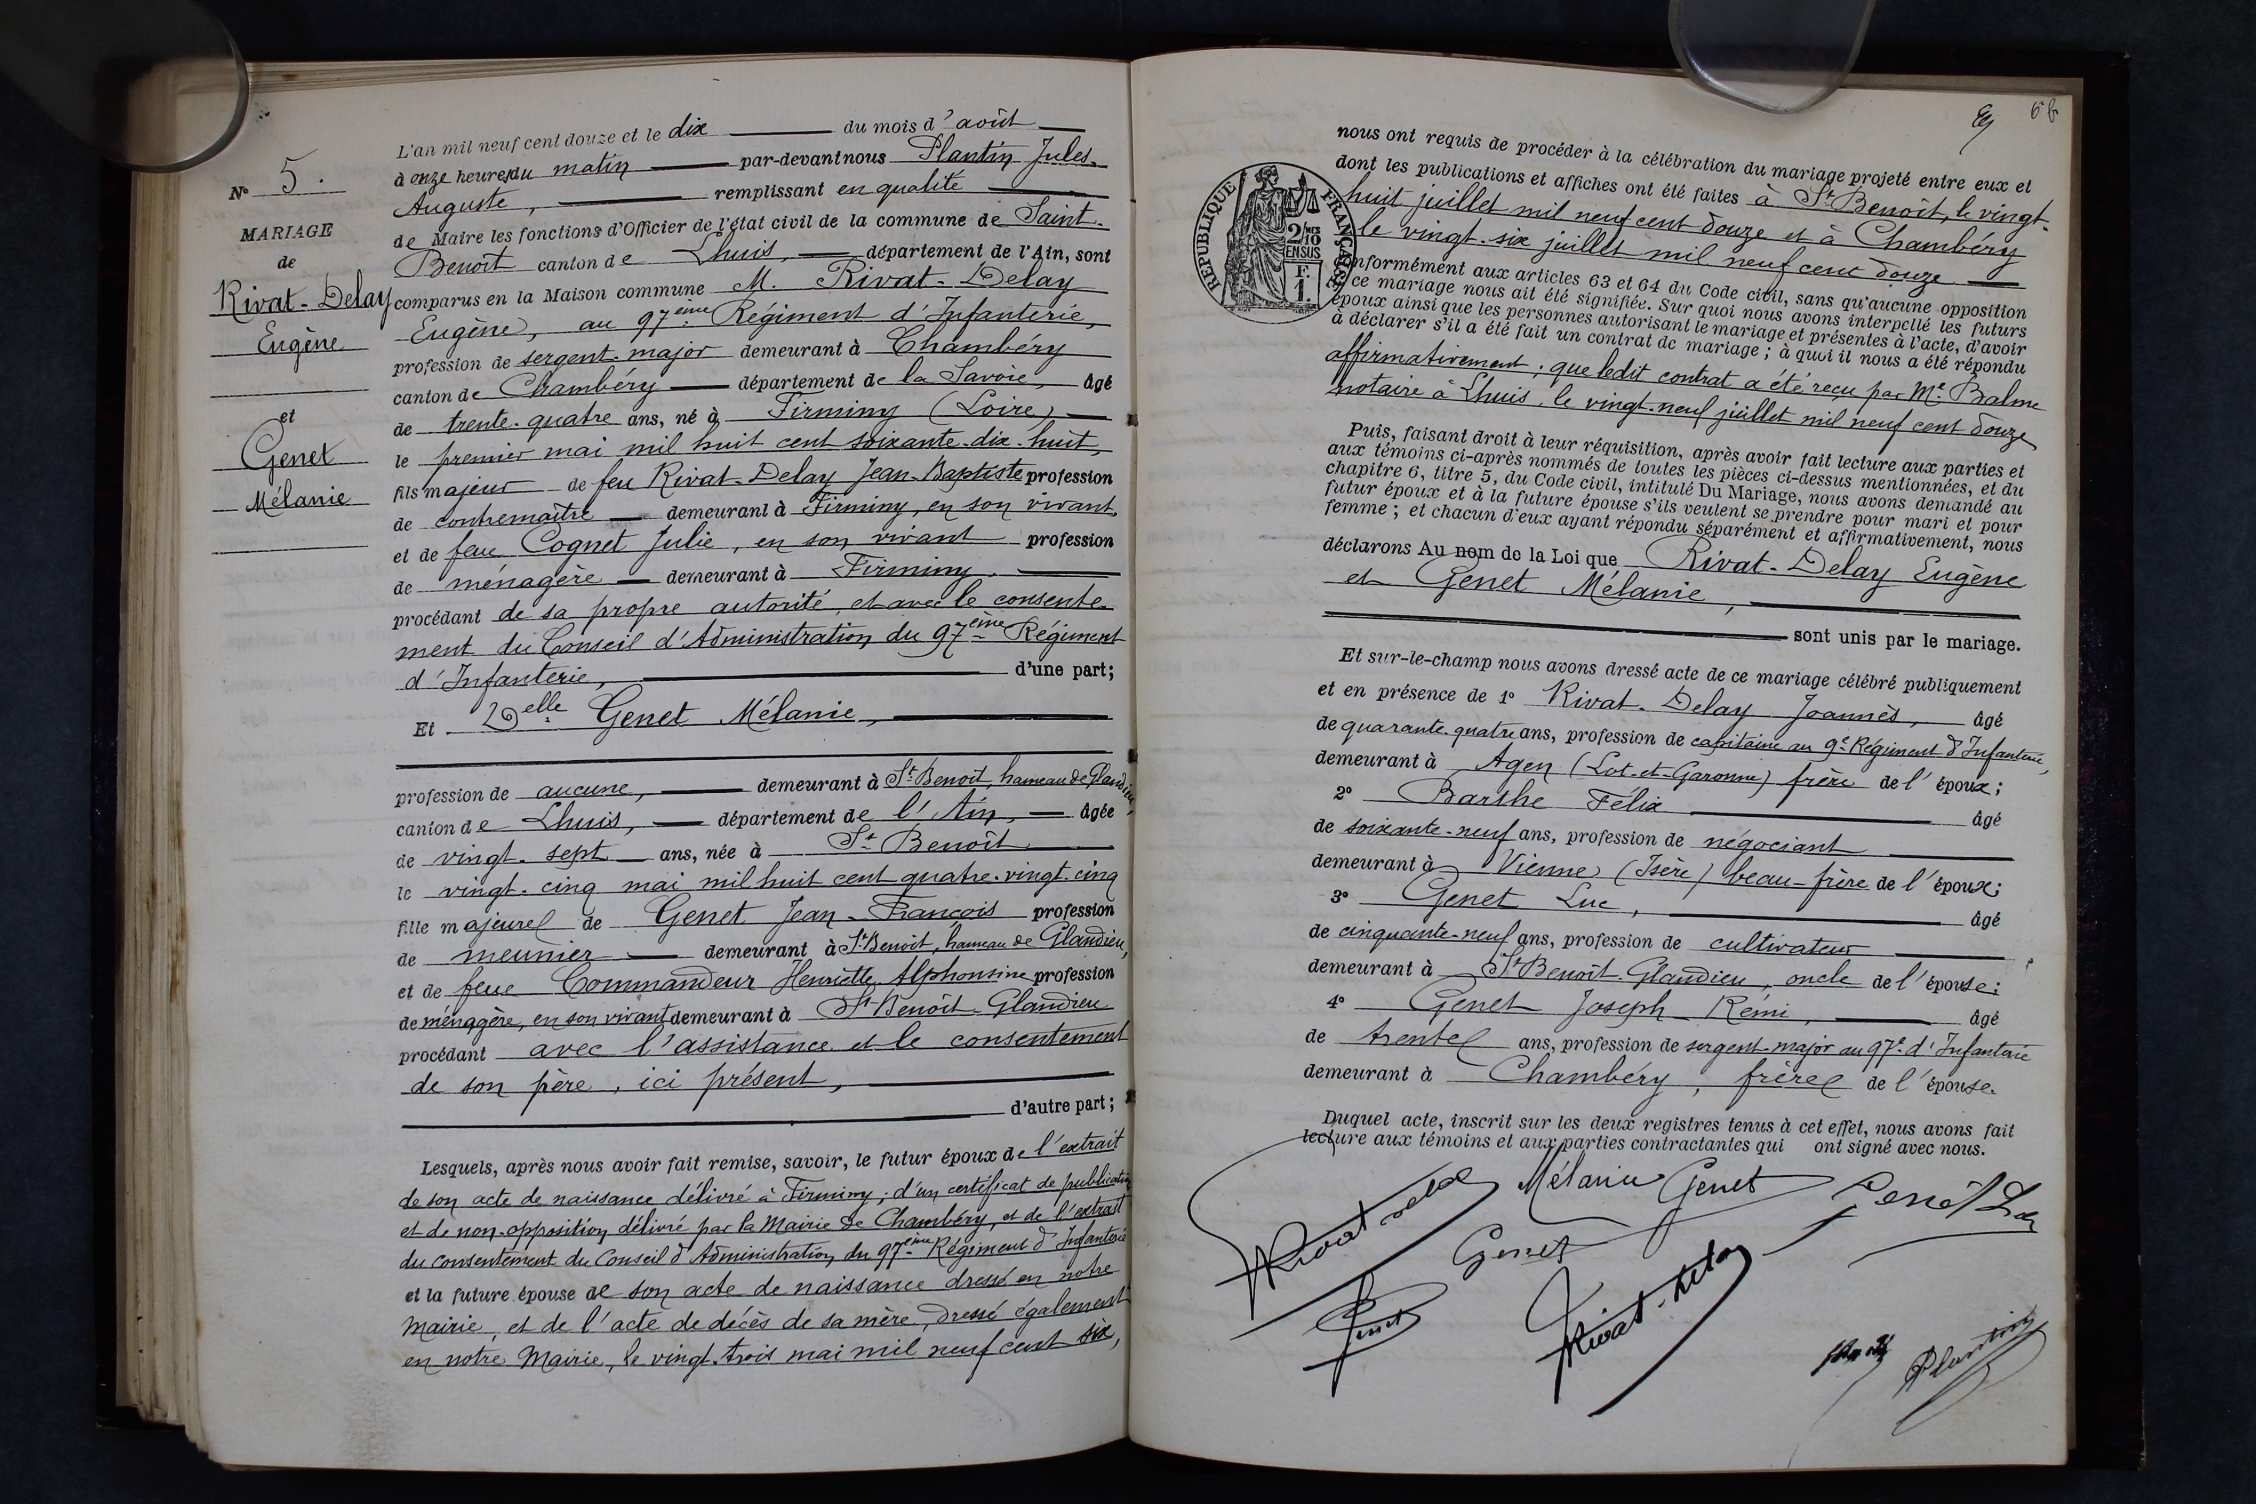 N° 5.
MARIAGE
de
Rivat-Delay
Eugène
et
Genet
Mélanie
L'an mil neuf cent douze et le dix du mois d'août
à onze heures du matin par-devant nous Plantin Jules-
Auguste, remplissant en qualité
de Maire les fonctions d'Officier de l'état civil de la commune de Saint-
Benoît canton de Lhuis, département de l'Ain, sont
comparus en la Maison commune M. Rivat-Delay
Eugène, au 97ème Régiment d'Infanterie,
profession de sergent-major demeurant à Chambéry
canton de Chambéry département de la Savoie, âgé
de trente-quatre ans, né à Firminy (Loire)
le premier mai mil huit cent soixante-dix-huit,
fils majeur de feu Rivat-Delay Jean-Baptiste profession
de contremaître demeurant à Firminy, en son vivant,
et de feue Cognet Julie, en son vivant profession
de ménagère demeurant à Firminy.
procédant de sa propre autorité, et avec le consente-
ment du Conseil d'Administration du 97ème Régiment
d'Infanterie, d'une part;
Et Delle Genet Mélanie,
profession de aucune, demeurant à St Benoît, hameau de Glandieu,
canton de Lhuis, département de l'Ain, âgée
de vingt-sept ans, née à St Benoît
le vingt-cinq mai mil huit cent quatre-vingt-cinq
fille majeure de Genet Jean-François profession
de meunier demeurant à St Benoît, hameau de Glandieu,
et de feue Commandeur Henriette Alphonsine profession
de ménagère, en son vivant demeurant à St Benoît-Glandieu
procédant avec l'assistance et le consentement
de son père, ici présent,
d'autre part;
Lesquels, après nous avoir fait remise, savoir, le futur époux de l'extrait
de son acte de naissance délivré à Firminy; d'un certificat de publication
et de non-opposition délivré par la Mairie de Chambéry, et de l'extrait
du consentement du Conseil d'Administration du 97ème Régiment d'Infanterie
et la future épouse de son acte de naissance dressé en notre
Mairie, et de l'acte de décès de sa mère, dressé également
en notre Mairie, le vingt-trois mai mil neuf cent six,
68
RÉPUBLIQUE FRANÇAISE
2/10
EN SUS
F.
1.
nous ont requis de procéder à la célébration du mariage projeté entre eux et
dont les publications et affiches ont été faites à St Benoît, le vingt-
huit juillet mil neuf cent douze et à Chambéry
le vingt-six juillet mil neuf cent douze
conformément aux articles 63 et 64 du Code civil, sans qu'aucune opposition
à ce mariage nous ait été signifiée. Sur quoi nous avons interpellé les futurs
époux ainsi que les personnes autorisant le mariage et présentes à l'acte, d'avoir
à déclarer s'il a été fait un contrat de mariage; à quoi il nous a été répondu
affirmativement; que ledit contrat a été reçu par Me Balme
notaire à Lhuis, le vingt-neuf juillet mil neuf cent douze
Puis, faisant droit à leur réquisition, après avoir fait lecture aux parties et
aux témoins ci-après nommés de toutes les pièces ci-dessus mentionnées, et du
chapitre 6, titre 5, du Code civil, intitulé Du Mariage, nous avons demandé au
futur époux et à la future épouse s'ils veulent se prendre pour mari et pour
femme; et chacun d'eux ayant répondu séparément et affirmativement, nous
déclarons Au nom de la Loi que Rivat-Delay Eugène
et Genet Mélanie,
sont unis par le mariage.
Et sur-le-champ nous avons dressé acte de ce mariage célébré publiquement
et en présence de 1° Rivat-Delay Joannès, âgé
de quarante-quatre ans, profession de capitaine au 9e Régiment d'Infanterie,
demeurant à Agen (Lot-et-Garonne) frère de l'époux;
2° Barthe Félix âgé
de soixante-neuf ans, profession de négociant
demeurant à Vienne (Isère) beau-frère de l'époux;
3° Genet Luc, âgé
de cinquante-neuf ans, profession de cultivateur
demeurant à St Benoît-Glandieu, oncle de l'épouse;
4° Genet Joseph-Rémi, âgé
de trente ans, profession de sergent-major au 97e d'Infanterie
demeurant à Chambéry, frère de l'épouse.
Duquel acte, inscrit sur les deux registres tenus à cet effet, nous avons fait
lecture aux témoins et aux parties contractantes qui ont signé avec nous.
Rivat delay Mélanie Genet Genet Luc
Genet
Genet Rivat-Delay
Plantin